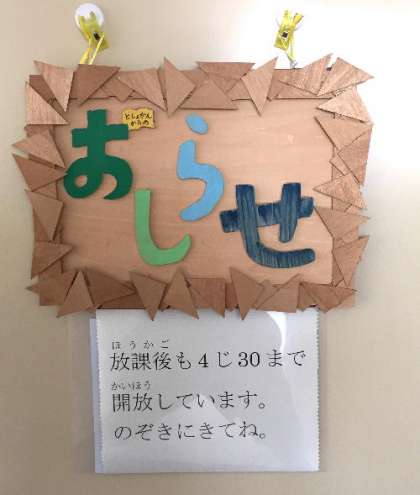 としょかん
からの
おしらせ
ほうかご
放課後も4じ30まで
かいほう
開放しています。
のぞきにきてね。